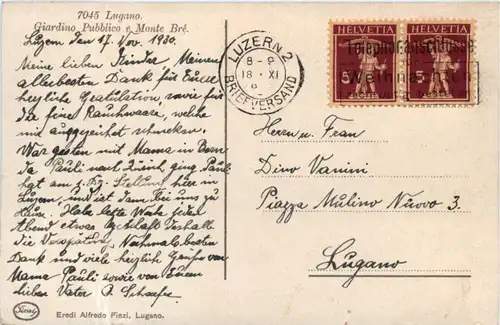 7045 Lugano.
Giardino Pubblico e Monte Brè.
Luzern den 17. Nov. 1930.
Meine lieben Kinder, Meinen
allerbesten Dank für Eure
herzliche Gratulation, sowie für
die feine Rauchware, welche
mir ausgezeichnet schmecken.
War gestern mit Mama in Bern
da Pauli nach Zürich ging. Pauli
hat am Stellung hier in
Luzern, und ist dann bei uns zu
Haus. Hatte letzte Woche jeden
Abend etwas deshalb
die Verspätung. Nochmals besten
Dank und viele herzliche Grüsse von
Mama Pauli sowie von Eurem
lieben Vater
Eredi Alfredo Finzi, Lugano.
LUZERN 2
8-9
18. XI
BRIEFVERSAND
HELVETIA HELVETIA
5 5
Herrn u. Frau
Dino Vanini
Piazza Mulino Nuovo 3.
Lugano